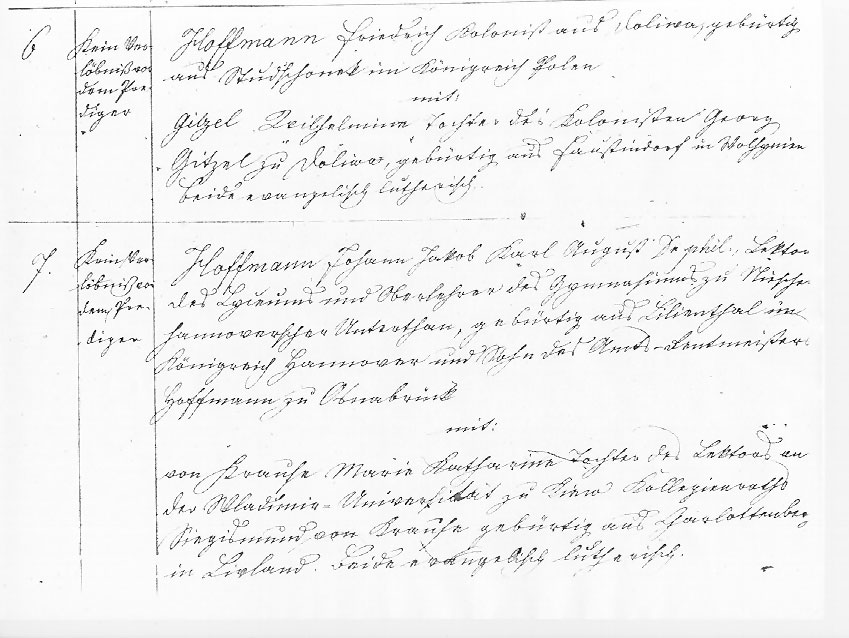 6
Kein Ver-
löbniß vor
dem Pre-
diger
Hoffmann Friedrich Kolonist aus Doliwa, gebürtig
aus im Königreich Polen
mit:
Gitzel Wilhelmine Tochter des Kolonisten Georg
Gitzel zu Doliwa, gebürtig aus Faustindorf in Wolhynien
beide evangelisch lutherisch.
7.
Kein Ver-
löbniß vor
dem Pre-
diger
Hoffmann Johann Jakob Karl August Dr phil., Lektor
des Lyceums und Oberlehrer des Gymnasiums zu
hannoverscher Unterthan, gebürtig aus Lilienthal im
Königreich Hannover und Sohn des Amts-Rentmeisters
Hoffmann zu Osnabrück
mit:
von Krause Marie Katharine Tochter des Lektors an
der Wladimir-Universität zu Kiew Kollegienraths
Siegismund von Krause gebürtig aus Charlottenberg
in Livland. Beide evangelisch lutherisch.